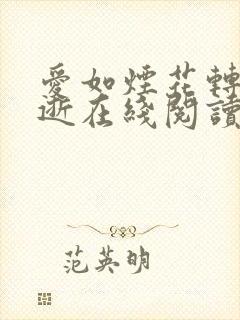 愛如煙花轉
逝在綫閱讀
范英明